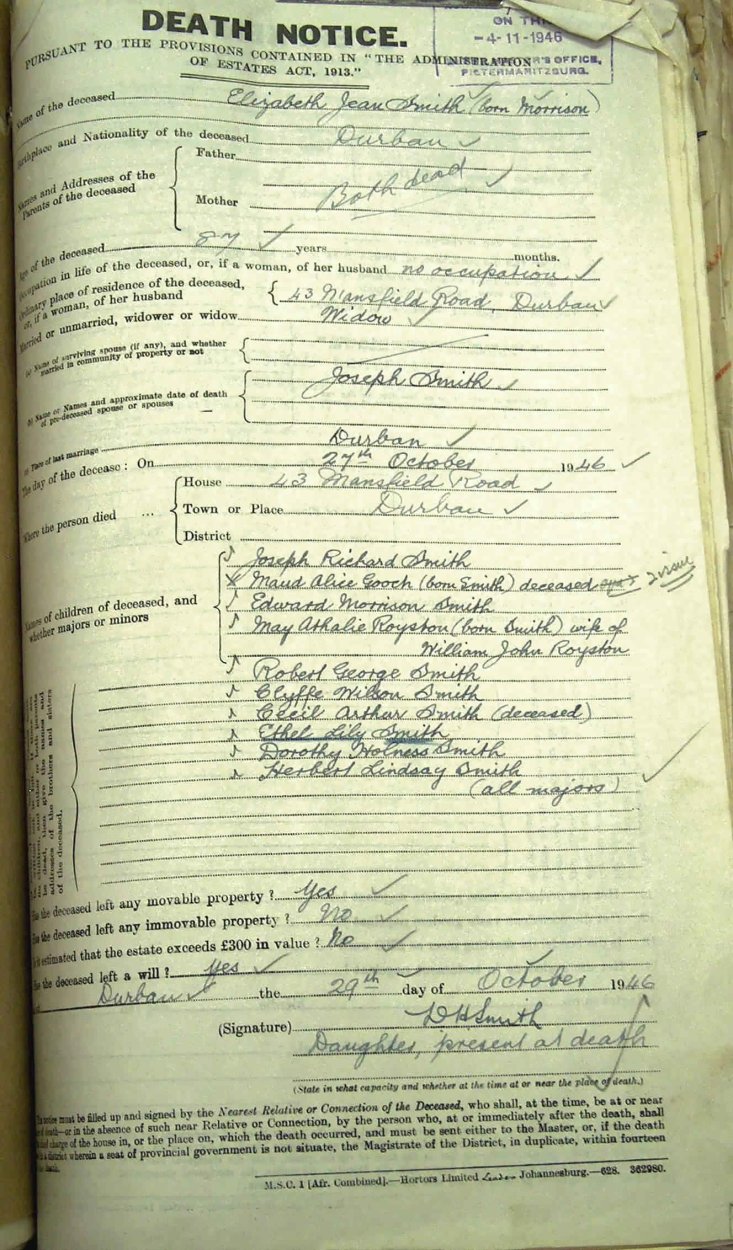 DEATH NOTICE.
ON TH
-4-11-1946
R'S OFFICE,
PIETERMARITZBURG.
PURSUANT TO THE PROVISIONS CONTAINED IN "THE ADMINISTRATION
OF ESTATES ACT, 1913."
Name of the deceased Elizabeth Jean Smith (born Morrison)
Birthplace and Nationality of the deceased Durban
Names and Addresses of the Parents of the deceased
Father
Both dead
Mother
Age of the deceased years months.
Occupation in life of the deceased, or, if a woman, of her husband no occupation
Ordinary place of residence of the deceased, or, if a woman, of her husband 43 Mansfield Road, Durban
Married or unmarried, widower or widow Widow
(a) Name of surviving spouse (if any), and whether married in community of property or not
(b) Name or Names and approximate date of death of pre-deceased spouse or spouses
Joseph Smith
(c) Place of last marriage Durban
The day of the decease: On 27th October 1946
Where the person died ...
House 43 Mansfield Road
Town or Place Durban
District
Names of children of deceased, and whether majors or minors
Joseph Richard Smith
Maud Alice Gooch (born Smith) deceased 2 issue
Edward Morrison Smith
May Athalie Royston (born Smith) wife of
William John Royston
Robert George Smith
Clyffe Wilson Smith
Cecil Arthur Smith (deceased)
Ethel Lily Smith
Dorothy Holness Smith
Herbert Lindsay Smith
(all majors)
be dead, then give the names and
addresses of the brothers and sisters
of the deceased.
Has the deceased left any movable property? Yes
Has the deceased left any immovable property? No
Is it estimated that the estate exceeds £300 in value? No
Has the deceased left a will? Yes
Durban the 29th day of October 1946
(Signature) DHSmith
Daughter, present at death
(State in what capacity and whether at the time at or near the place of death.)
notice must be filled up and signed by the Nearest Relative or Connection of the Deceased, who shall, at the time, be at or near
of death—or in the absence of such near Relative or Connection, by the person who, at or immediately after the death, shall
charge of the house in, or the place on, which the death occurred, and must be sent either to the Master, or, if the death
in a district wherein a seat of provincial government is not situate, the Magistrate of the District, in duplicate, within fourteen
death.
M.S.C. 1 [Afr. Combined].—Hortors Limited Johannesburg.—628. 362980.